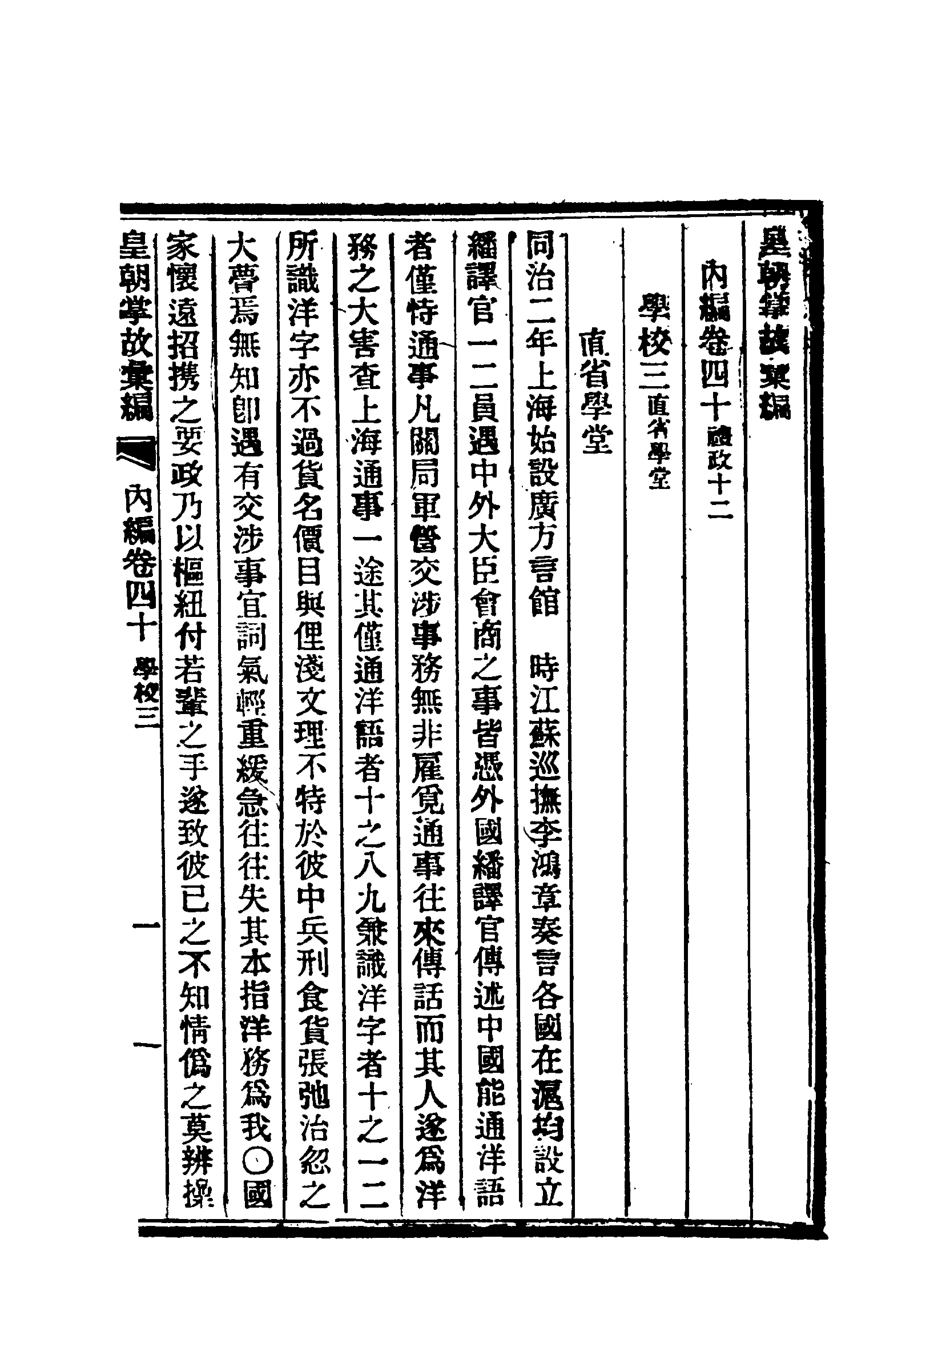 皇朝掌故彙編
內編卷四十禮政十二
學校三直省學堂
直省學堂
同治二年上海始設廣方言館　時江蘇巡撫李鴻章奏言各國在滬均設立
繙譯官一二員遇中外大臣會商之事皆憑外國繙譯官傳述中國能通洋語
者僅恃通事凡關局軍營交涉事務無非雇覓通事往來傳話而其人遂爲洋
務之大害查上海通事一途其僅通洋語者十之八九兼識洋字者十之一二
所識洋字亦不過貨名價目與俚淺文理不特於彼中兵刑食貨張弛治忽之
大瞢焉無知卽遇有交涉事宜詞氣輕重緩急往往失其本指洋務爲我〇國
家懷遠招攜之要政乃以樞紐付若輩之手遂致彼已之不知情僞之莫辨操
皇朝掌故彙編　內編卷四十　學校三　一　一